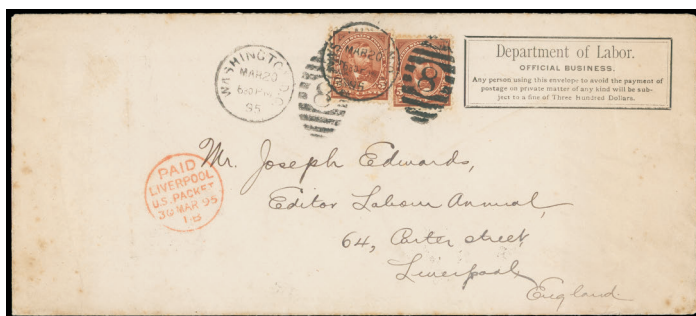 WASHINGTON, D.C.
MAR 20
95
MAR 20
8
8
Department of Labor.
OFFICIAL BUSINESS.
Any person using this envelope to avoid the payment of
postage on private matter of any kind will be sub-
ject to a fine of Three Hundred Dollars.
PAID
LIVERPOOL
U.S. PACKET
30 MAR 95
Mr. Joseph Edwards,
Editor Labour Annual,
64, Carter street
Liverpool,
England.